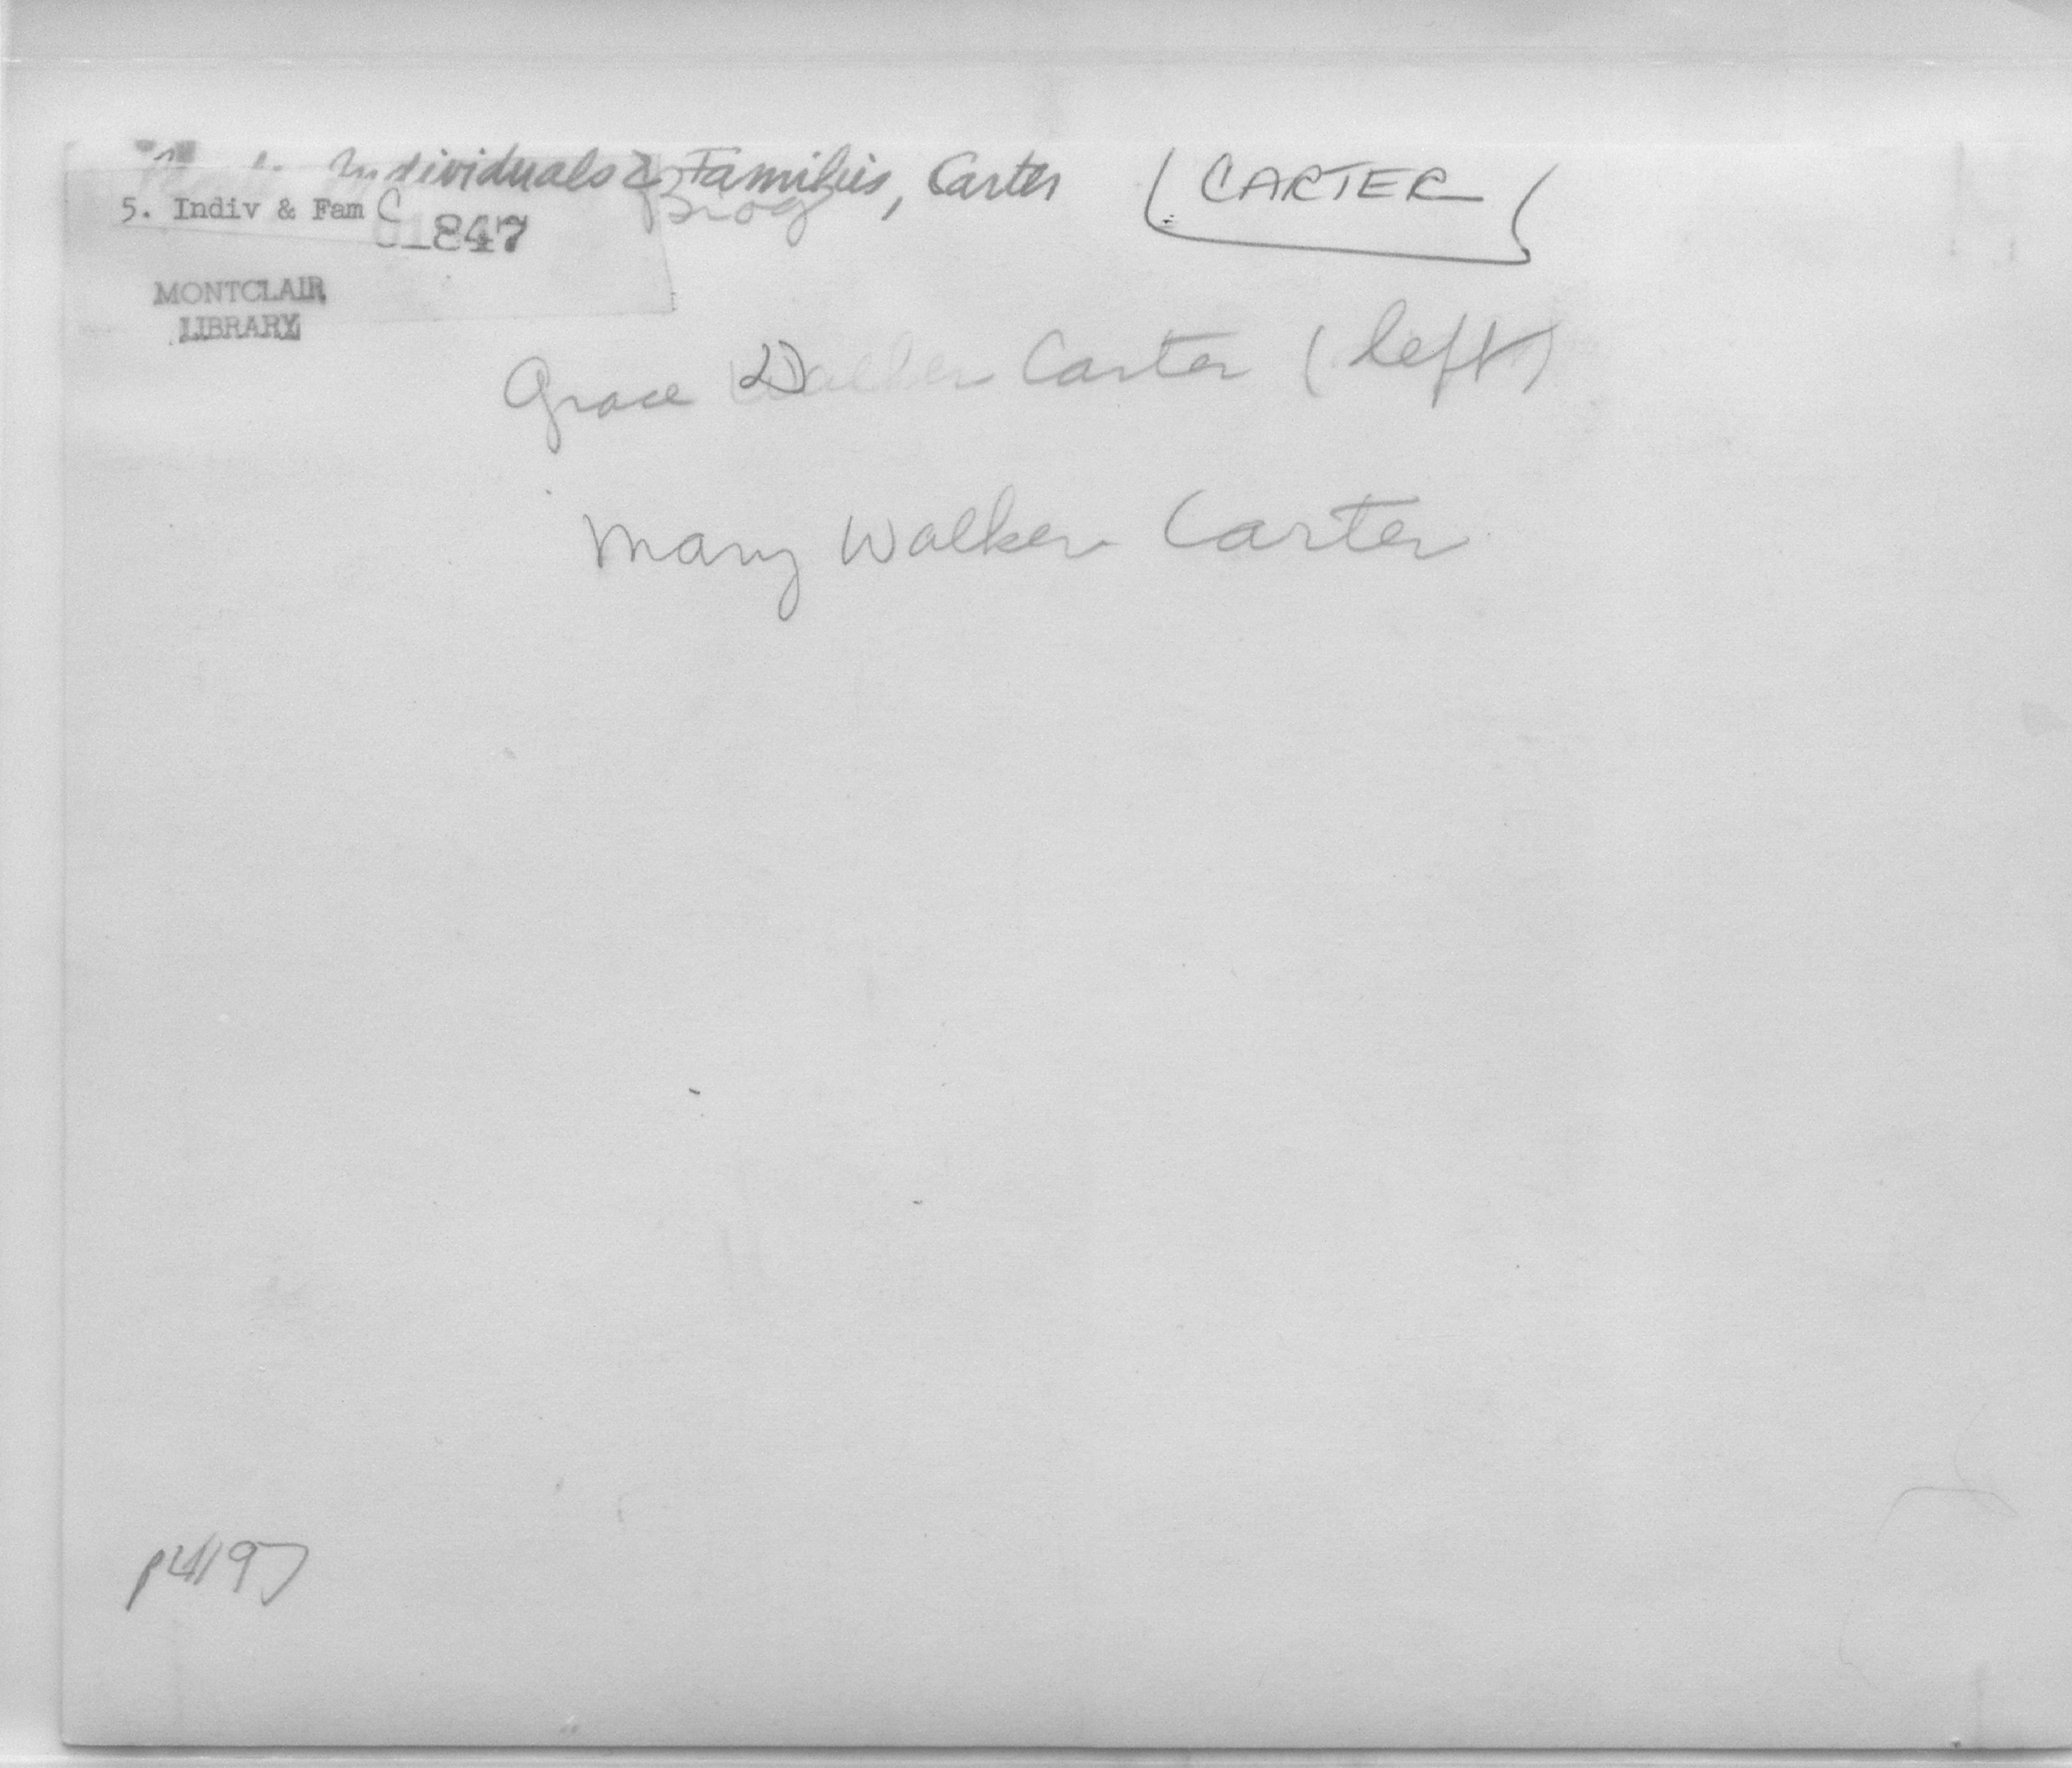 Individuals & Families, Carter (CARTER)
Biog
5. Indiv & Fam C
1847
MONTCLAIR
LIBRARY
Grace W Carter (left)
Mary Walker Carter
p4197